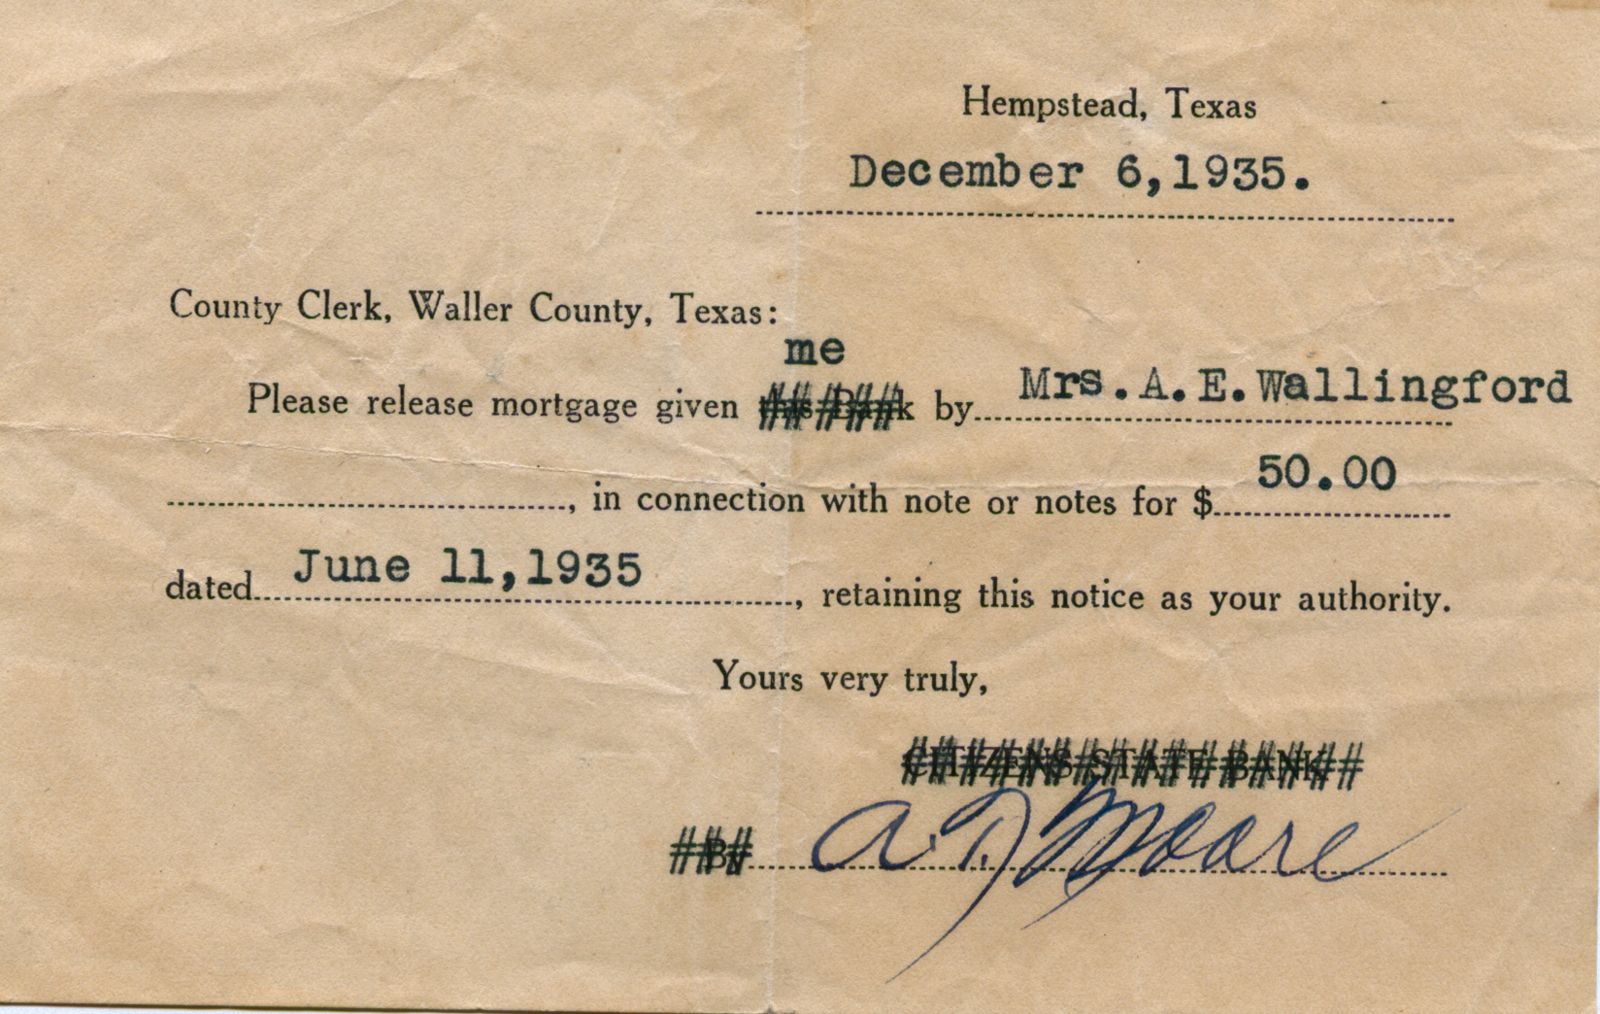 Hempstead, Texas
December 6,1935.
County Clerk, Waller County, Texas:
me
Please release mortgage given this Bank by Mrs.A.E.Wallingford
, in connection with note or notes for $ 50.00
dated June 11,1935, retaining this notice as your authority.
Yours very truly,
CITIZENS STATE BANK
By A. D. Moore